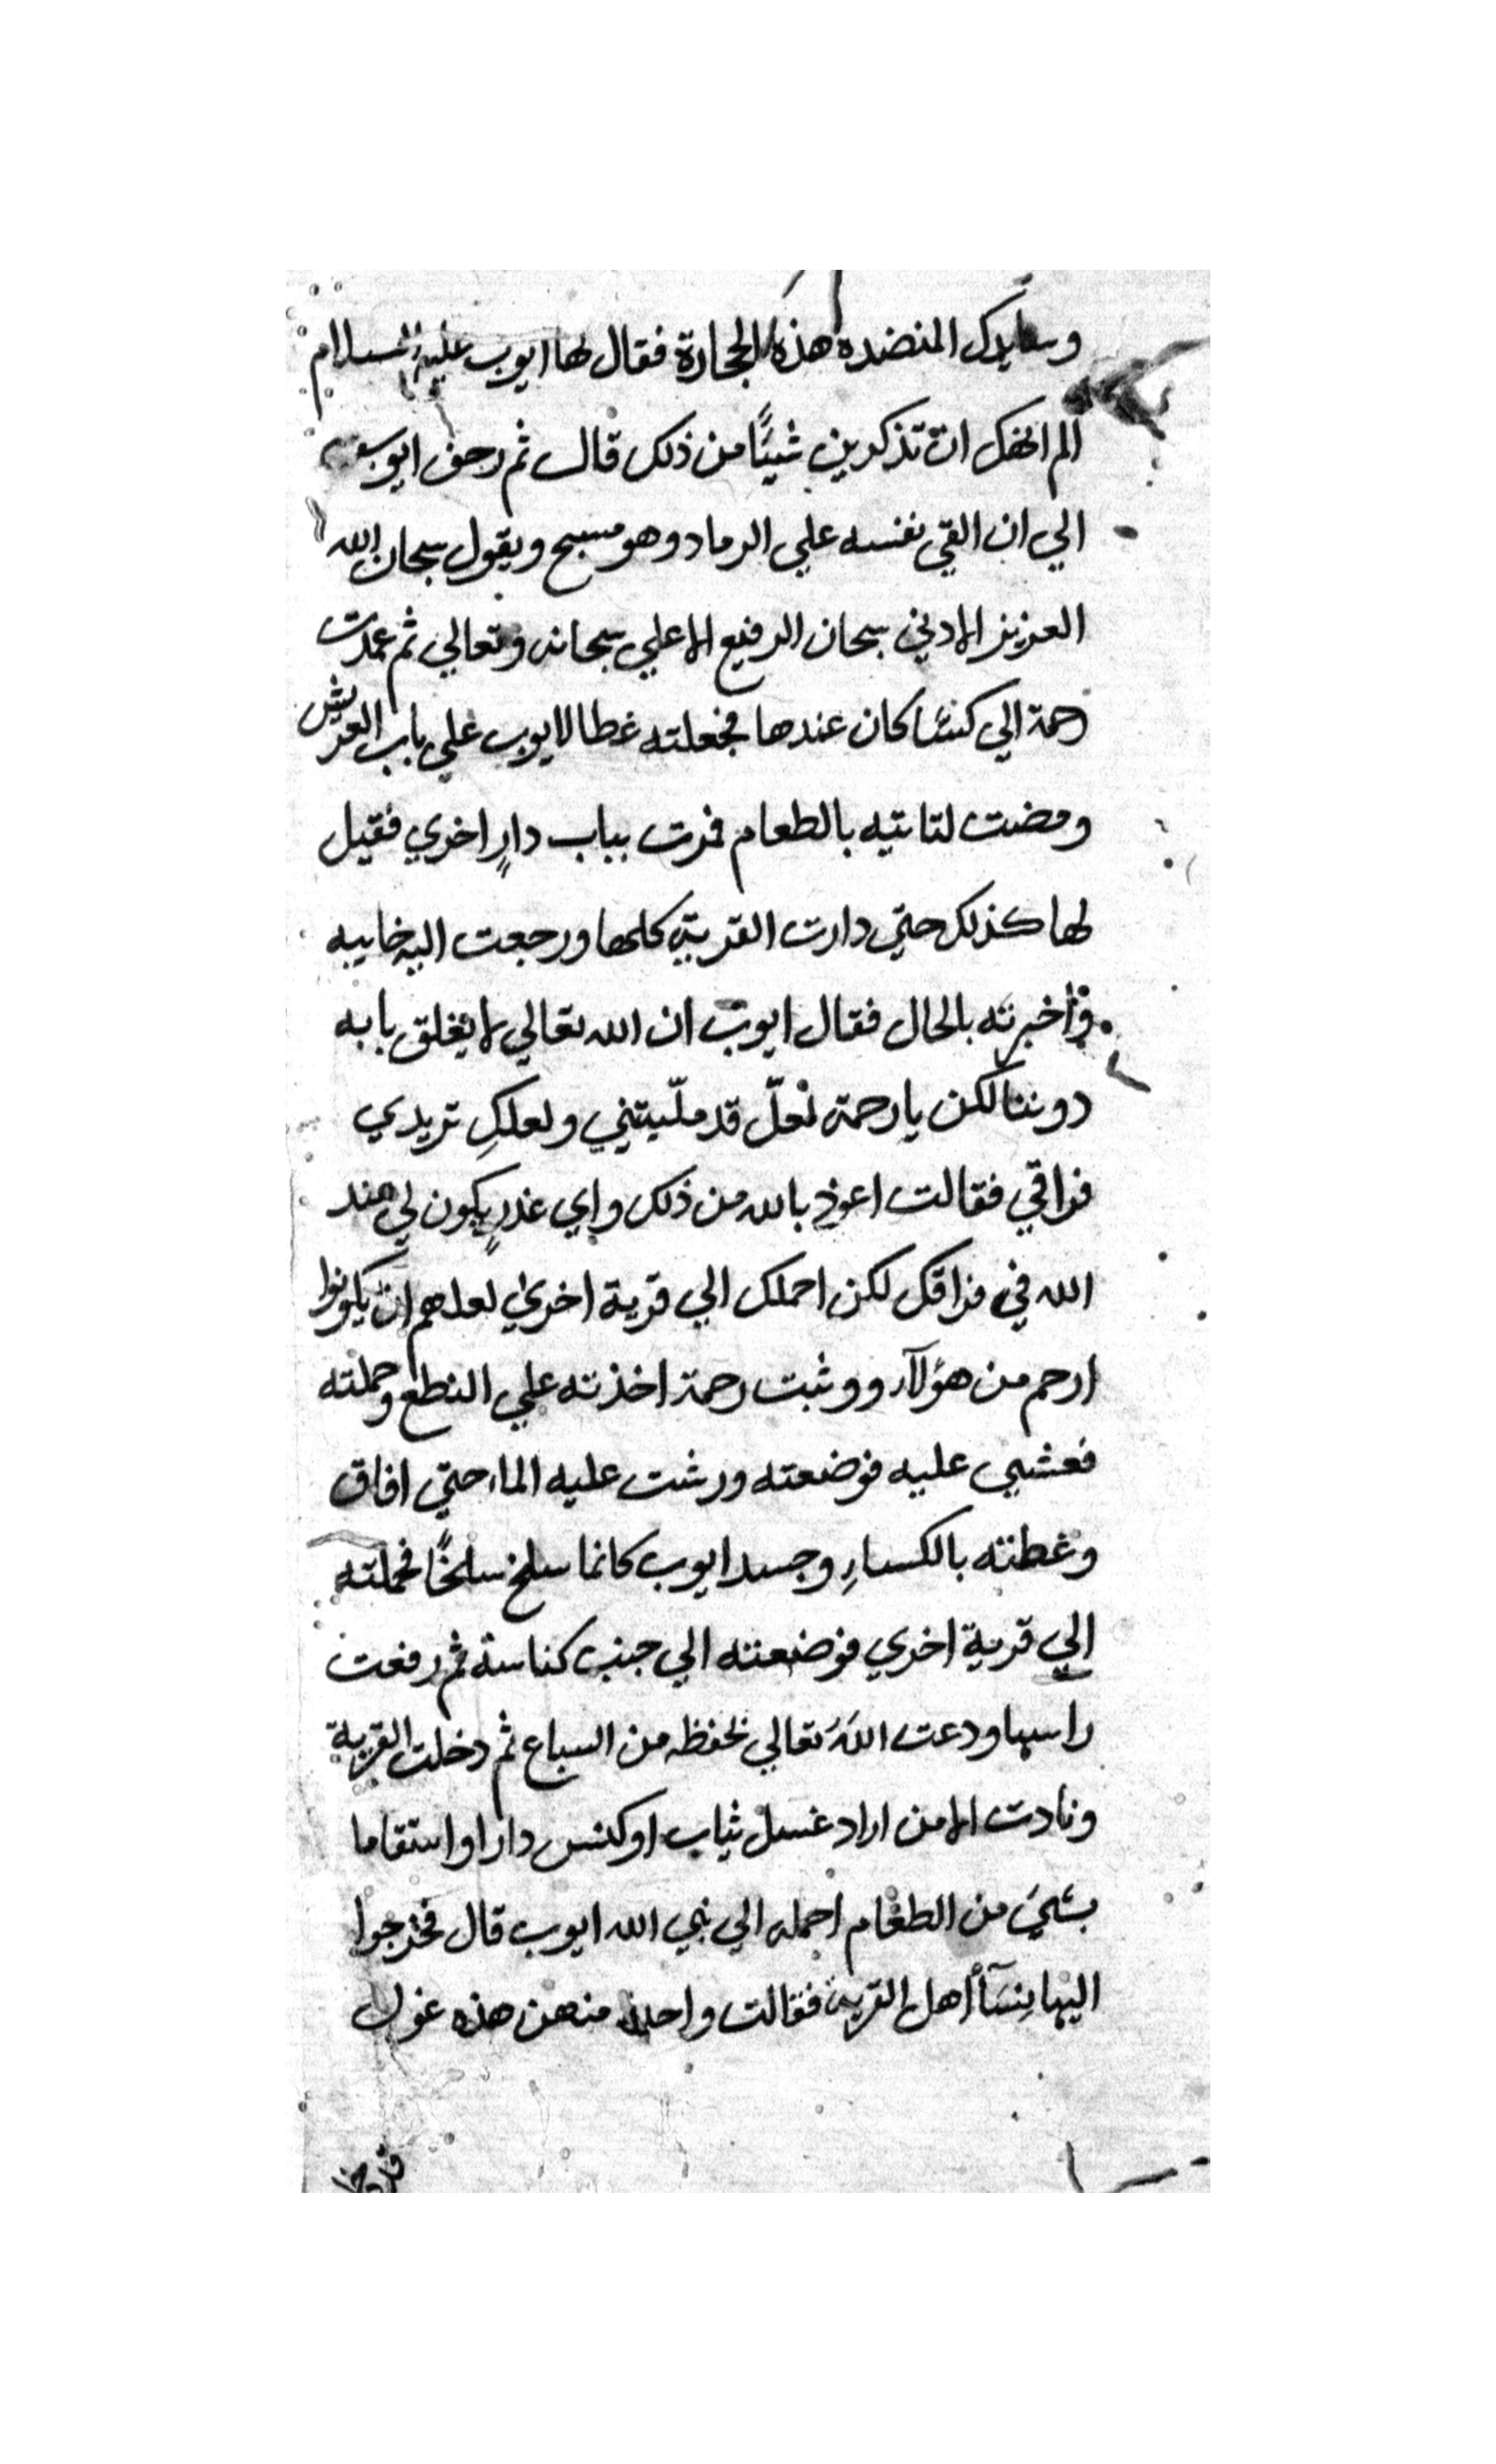 وسايدك المنضدة هذه الحجارة فقال لها ايوب عليه السلام
الم انهك ان تذكرين شيئًا من ذلك قال ثم زحف ايوب
الي ان القي نفسه علي الرماد وهو مسبح ويقول سبحان الله
العزيز الادني سبحان الرفيع الاعلي سبحانه وتعالي ثم عمدت
رحمة الي كسًا كان عندها فجعلته غطا لايوب علي باب العريش
ومضت لتاتيه بالطعام فمرت بباب دارٍ اخري فقيل
لها كذلك حتي دارت القرية كلها ورجعت اليه خايبه
وأخبرته بالحال فقال ايوب ان الله تعالي لا يغلق بابه
دوننا لكن يا رحمة لعلّ قد ملّيتني ولعلكِ تريدي
فراقي فقالت اعوذ بالله من ذلك واي عذرٍ يكون لي عند
الله في فراقك لكن احملك الي قرية اخري لعلهم ان يكونوا
ارحم من هؤلآء ووثبت رحمة اخذته علي النطع وحملته
فغشي عليه فوضعته ورشت عليه الماء حتي افاق
وغطته بالكساءِ وجسد ايوب كانما سلخ سلخًا فحملته
الي قرية اخري فوضعته الي جنب كناسة ثم رفعت
راسها ودعت اللهَ تعالي لحفظه من السباع ثم دخلت القرية
ونادت الا من اراد غسل ثياب او كنس دار او استقاما
بشيء من الطعام احمله الي نبي الله ايوب قال فخرجوا
اليها نِسَآأ اهل القرية فقالت واحدة منهن هذه غول